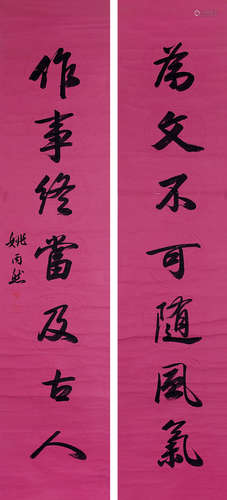 為文不可隨風氣
作事終當及古人
姚丙然